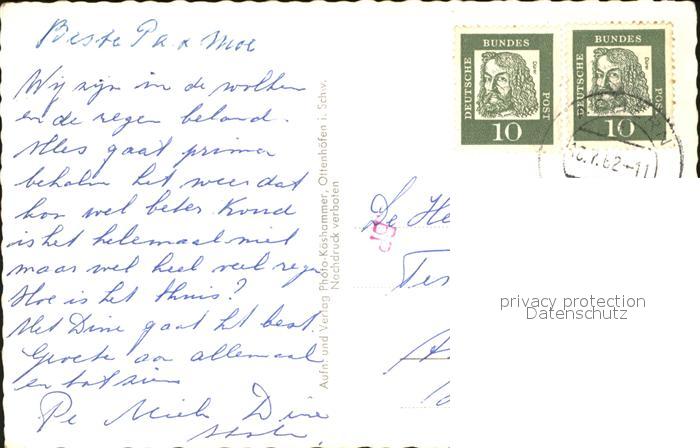 Beste Pa & Moe
Wij zijn in de wolken
en de regen beland.
Alles gaat prima
behalve het weer dat
kon wel beter. Koud
is het helemaal niet
maar wel heel veel regen
Hoe is het thuis?
Met Dine gaat het best.
Groete aan allemaal
en tot ziens
Pe Miek Dine
Aufn. und Verlag Photo-Köshammer, Ottenhöfen i. Schw.
Nachdruck verboten
DEUTSCHE BUNDES POST
Dürer
10
DEUTSCHE BUNDES POST
Dürer
10
.62-11
De He
Ter
privacy protection
Datenschutz